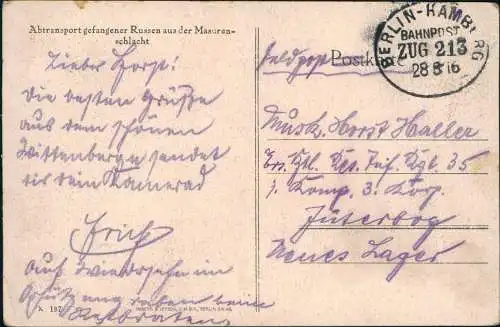 Abtransport gefangener Russen aus der Masuren-
schlacht
Lieber Horst!
Die besten Grüße
aus dem schönen
Wittenberge sendet
dir dein Kamerad
Ernst
Auf Wiedersehn im
beim
Feldpost Postkarte
BERLIN-HAMBURG
BAHNPOST
ZUG 213
28 8 16
Musk. Horst Haller
Ers. Btl. Res. Inf. Rgt. 35
1. Komp. 3. Korp.
Jüterbog
Neues Lager